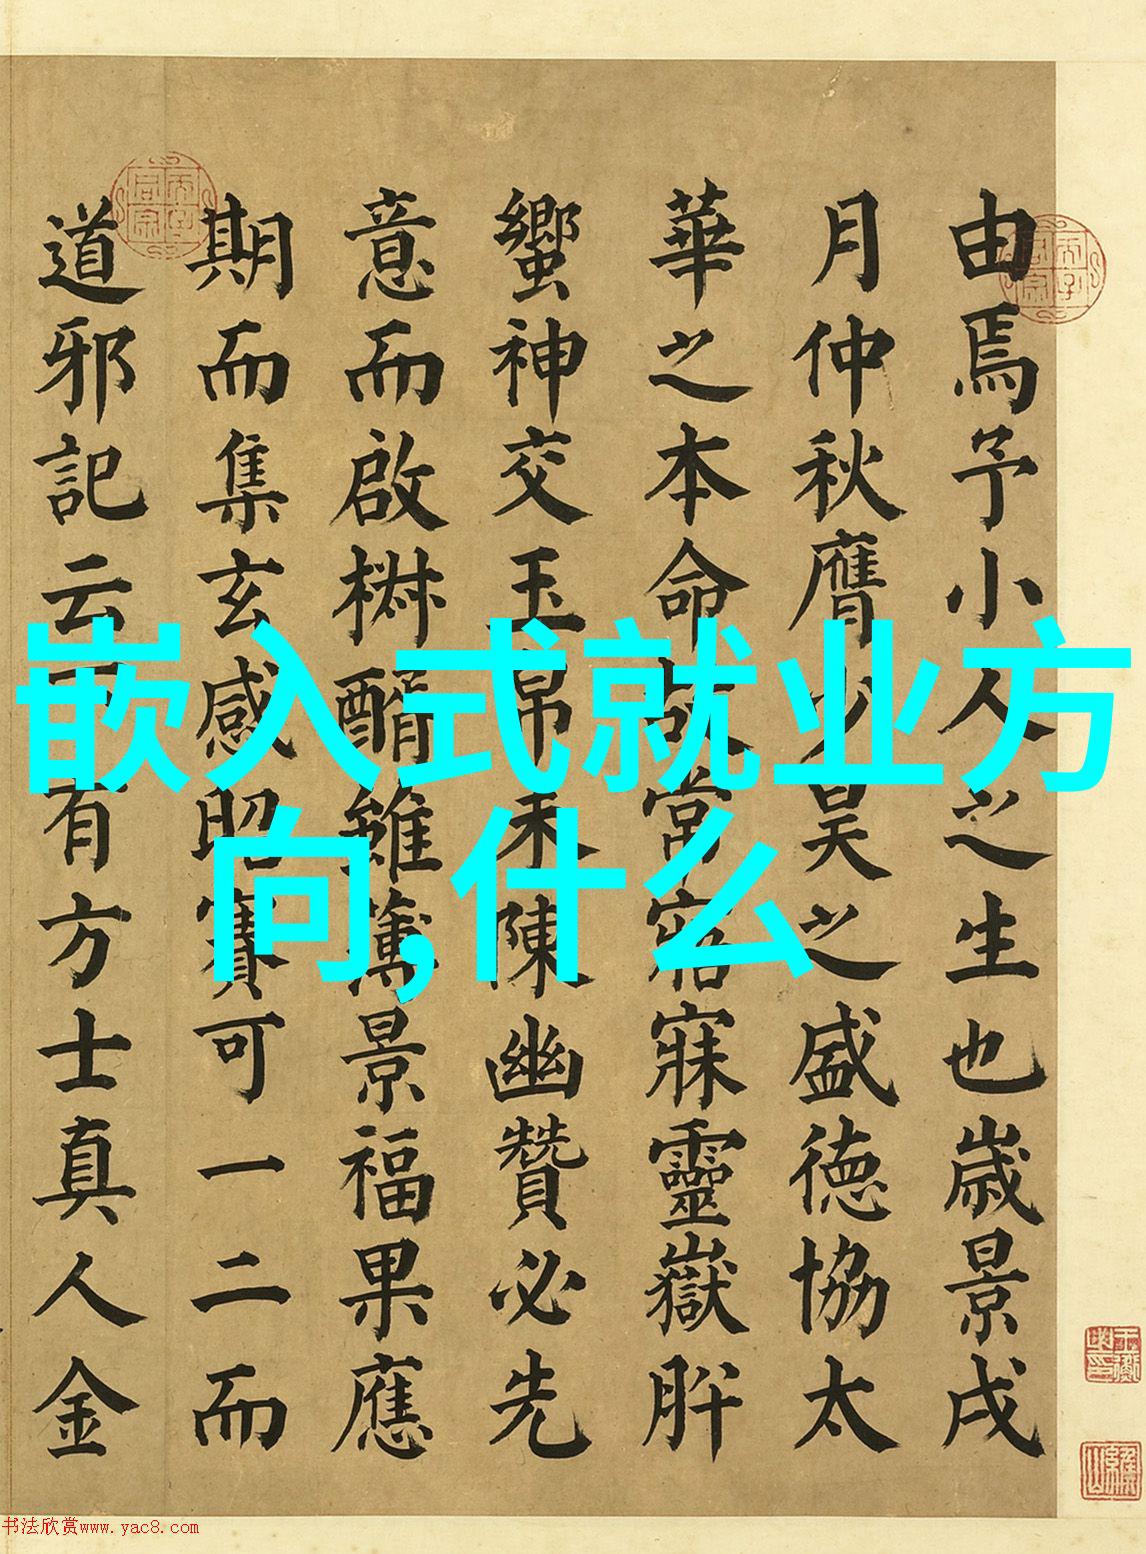 由焉予小人之生也歲景戌
月仲秋膺少昊之盛德協太
華之本命故常寤寐靈嶽肸
蠁神交玉帛未陳幽贊必先
意而啟椒醑雖薄景福果應
期而集玄感昭賽可一二而
道邪記云有方士真人金
嵌入式就业方
向,什么
书法欣赏www.yac8.com